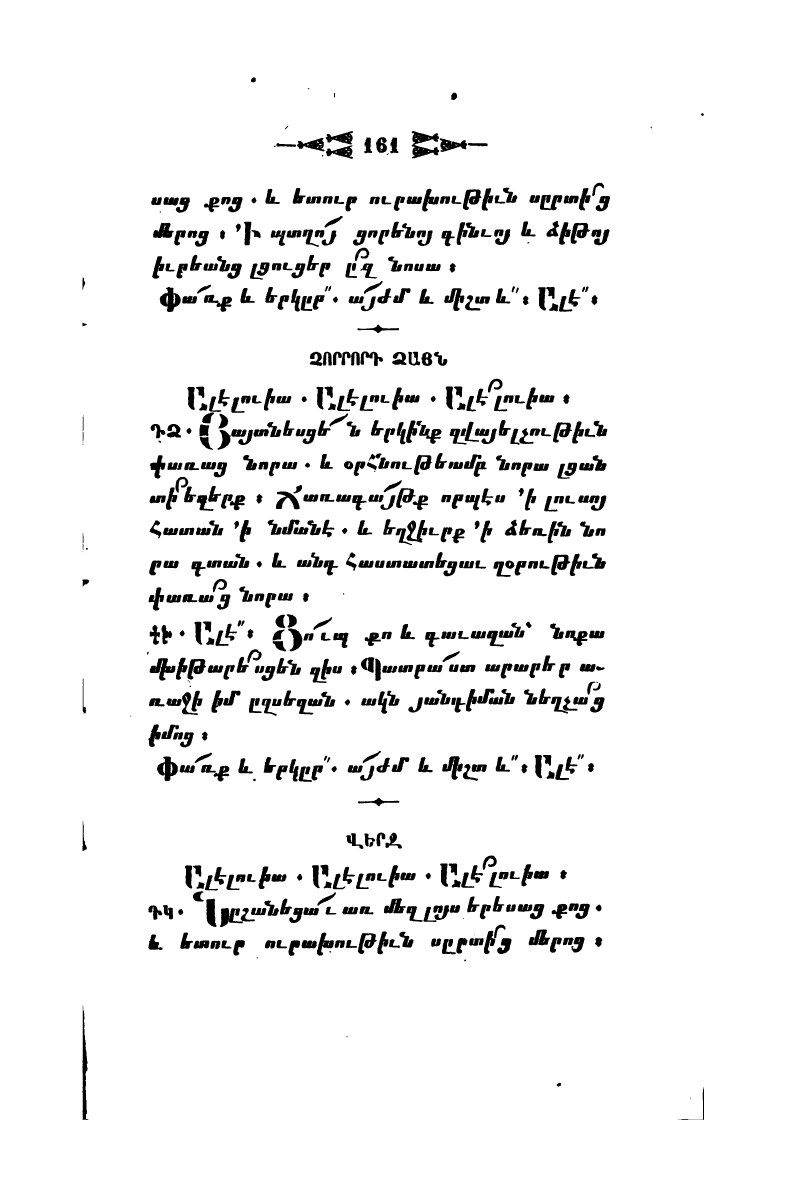 161
սաց քոց · և ետուր ուրախութիւն սըրտի՜ց
մերոց ։ ՚Ի պտղո՜յ ցորենոյ գինւոյ և ձիթոյ
իւրեանց լցուցեր ը՜զ նոսա ։
Փա՜ռք և երկըր՞· ա՜յժմ և միշտ և՞։ Ալէ՞։
ՉՈՐՐՈՐԴ ՁԱՅՆ
Ալէլուիա · Ալէլուիա · Ալէ՜լուիա ։
ԴՁ · Յայտնեսցե՜ն երկինք զվայելչութիւն
փառաց նորա · և օրհնութեամբ նորա լցան
տի՜եզերք ։ Ճառագա՜յթք որպէս ՚ի լուսոյ
հատան ՚ի նմանէ · և եղջիւրք ՚ի ձեռին նո
րա գտան · և անդ հաստատեցաւ զօրութիւն
փառա՜ց նորա ։
ՎԻ · Ալէ՞։ Ցո՜ւպ քո և գաւազան՝ նոքա
մխիթարե՜սցեն զիս ։ Պատրա՜ստ արարեր ա֊
ռաջի իմ ըզսեղան · ակն յանդիման նեղչա՜ց
իմոց ։
Փա՜ռք և երկըր՞· ա՜յժմ և միշտ և՞։ Ալէ՞։
ՎԵՐՋ
Ալէլուիա · Ալէլուիա · Ալէ՜լուիա ։
ԴԿ · Նըշանեցա՜ւ առ մեզ լոյս երեսաց քոց ·
և ետուր ուրախութիւն սըրտի՜ց մերոց ։